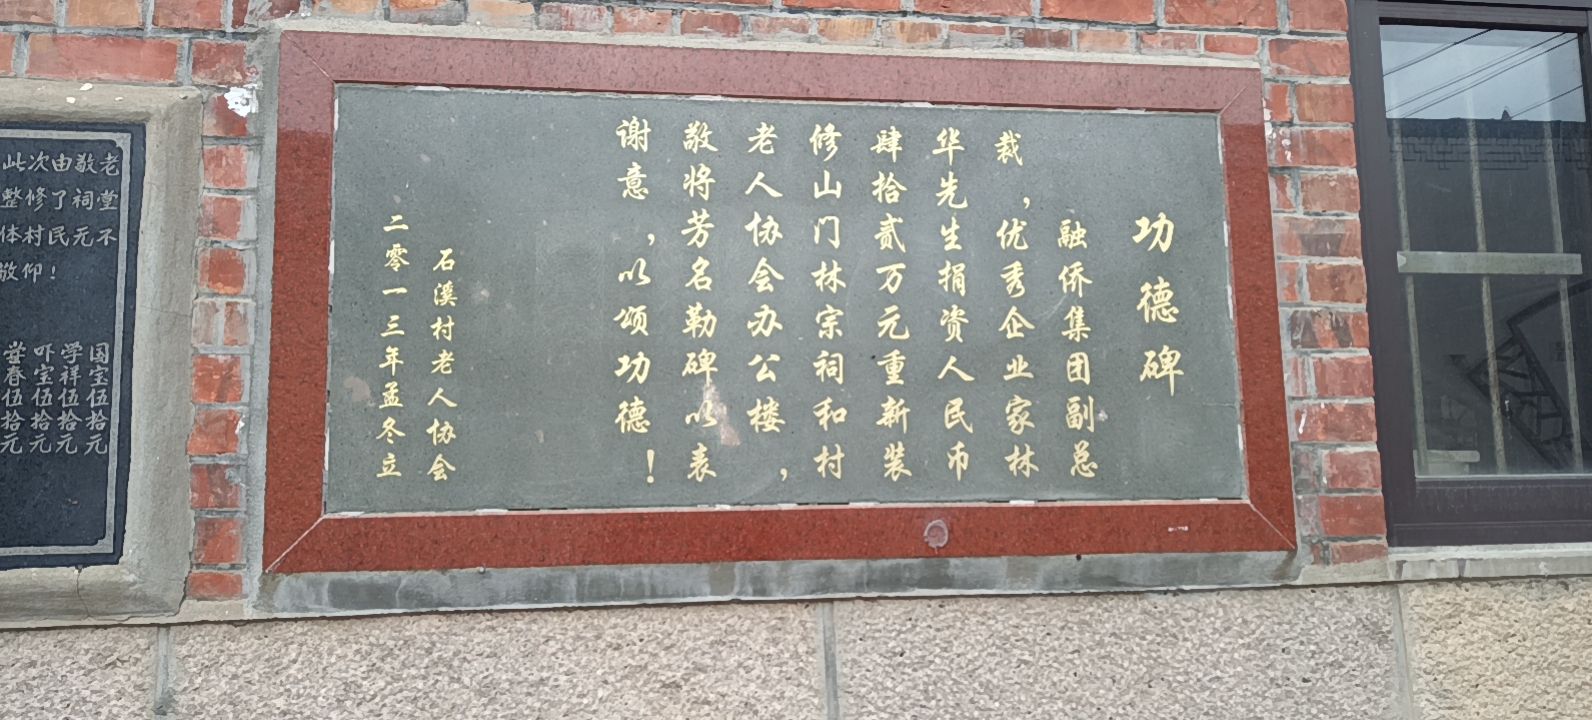 功德碑
融侨集团副总
裁，优秀企业家林
华先生捐资人民币
肆拾贰万元重新装
修山门林宗祠和村
老人协会办公楼，
敬将芳名勒碑以表
谢意，以颂功德！
石溪村老人协会
二零一三年孟冬立
此次由敬老
整修了祠堂
体村民元不
敬仰！
国宝伍拾元
学祥伍拾元
吓宝伍拾元
春伍拾元